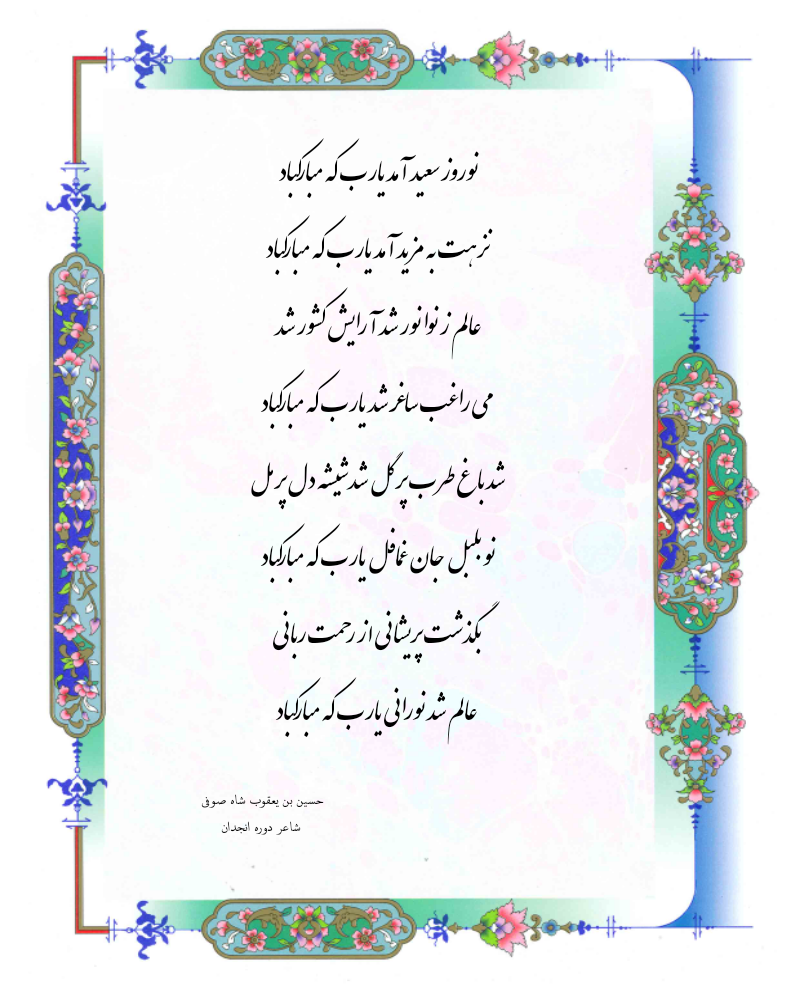 نوروز سعید آمد یارب که مبارکباد
نزهت به مزید آمد یارب که مبارکباد
عالم ز نوا نور شد آرایش کشور شد
می راغب ساغر شد یارب که مبارکباد
شد باغ طرب پر گل شد شیشه دل پر مل
نو بلبل جان غافل یارب که مبارکباد
بگذشت پریشانی از رحمت ربانی
عالم شد نورانی یارب که مبارکباد
حسین بن یعقوب شاه صوفی
شاعر دوره انجدان